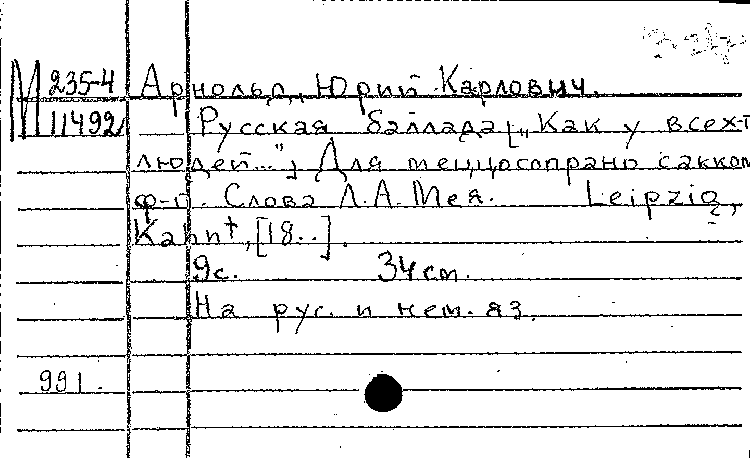 М 235-4 Арнольд, Юрий Карлович.
11492 Русская баллада [„Как у всех-т
людей...”] Для меццосопрано с акком
ф-п. Слова Л.А. Мея. Leipzig,
Kahnt, [18..].
9с. 34 см.
На рус. и нем. яз.
991.